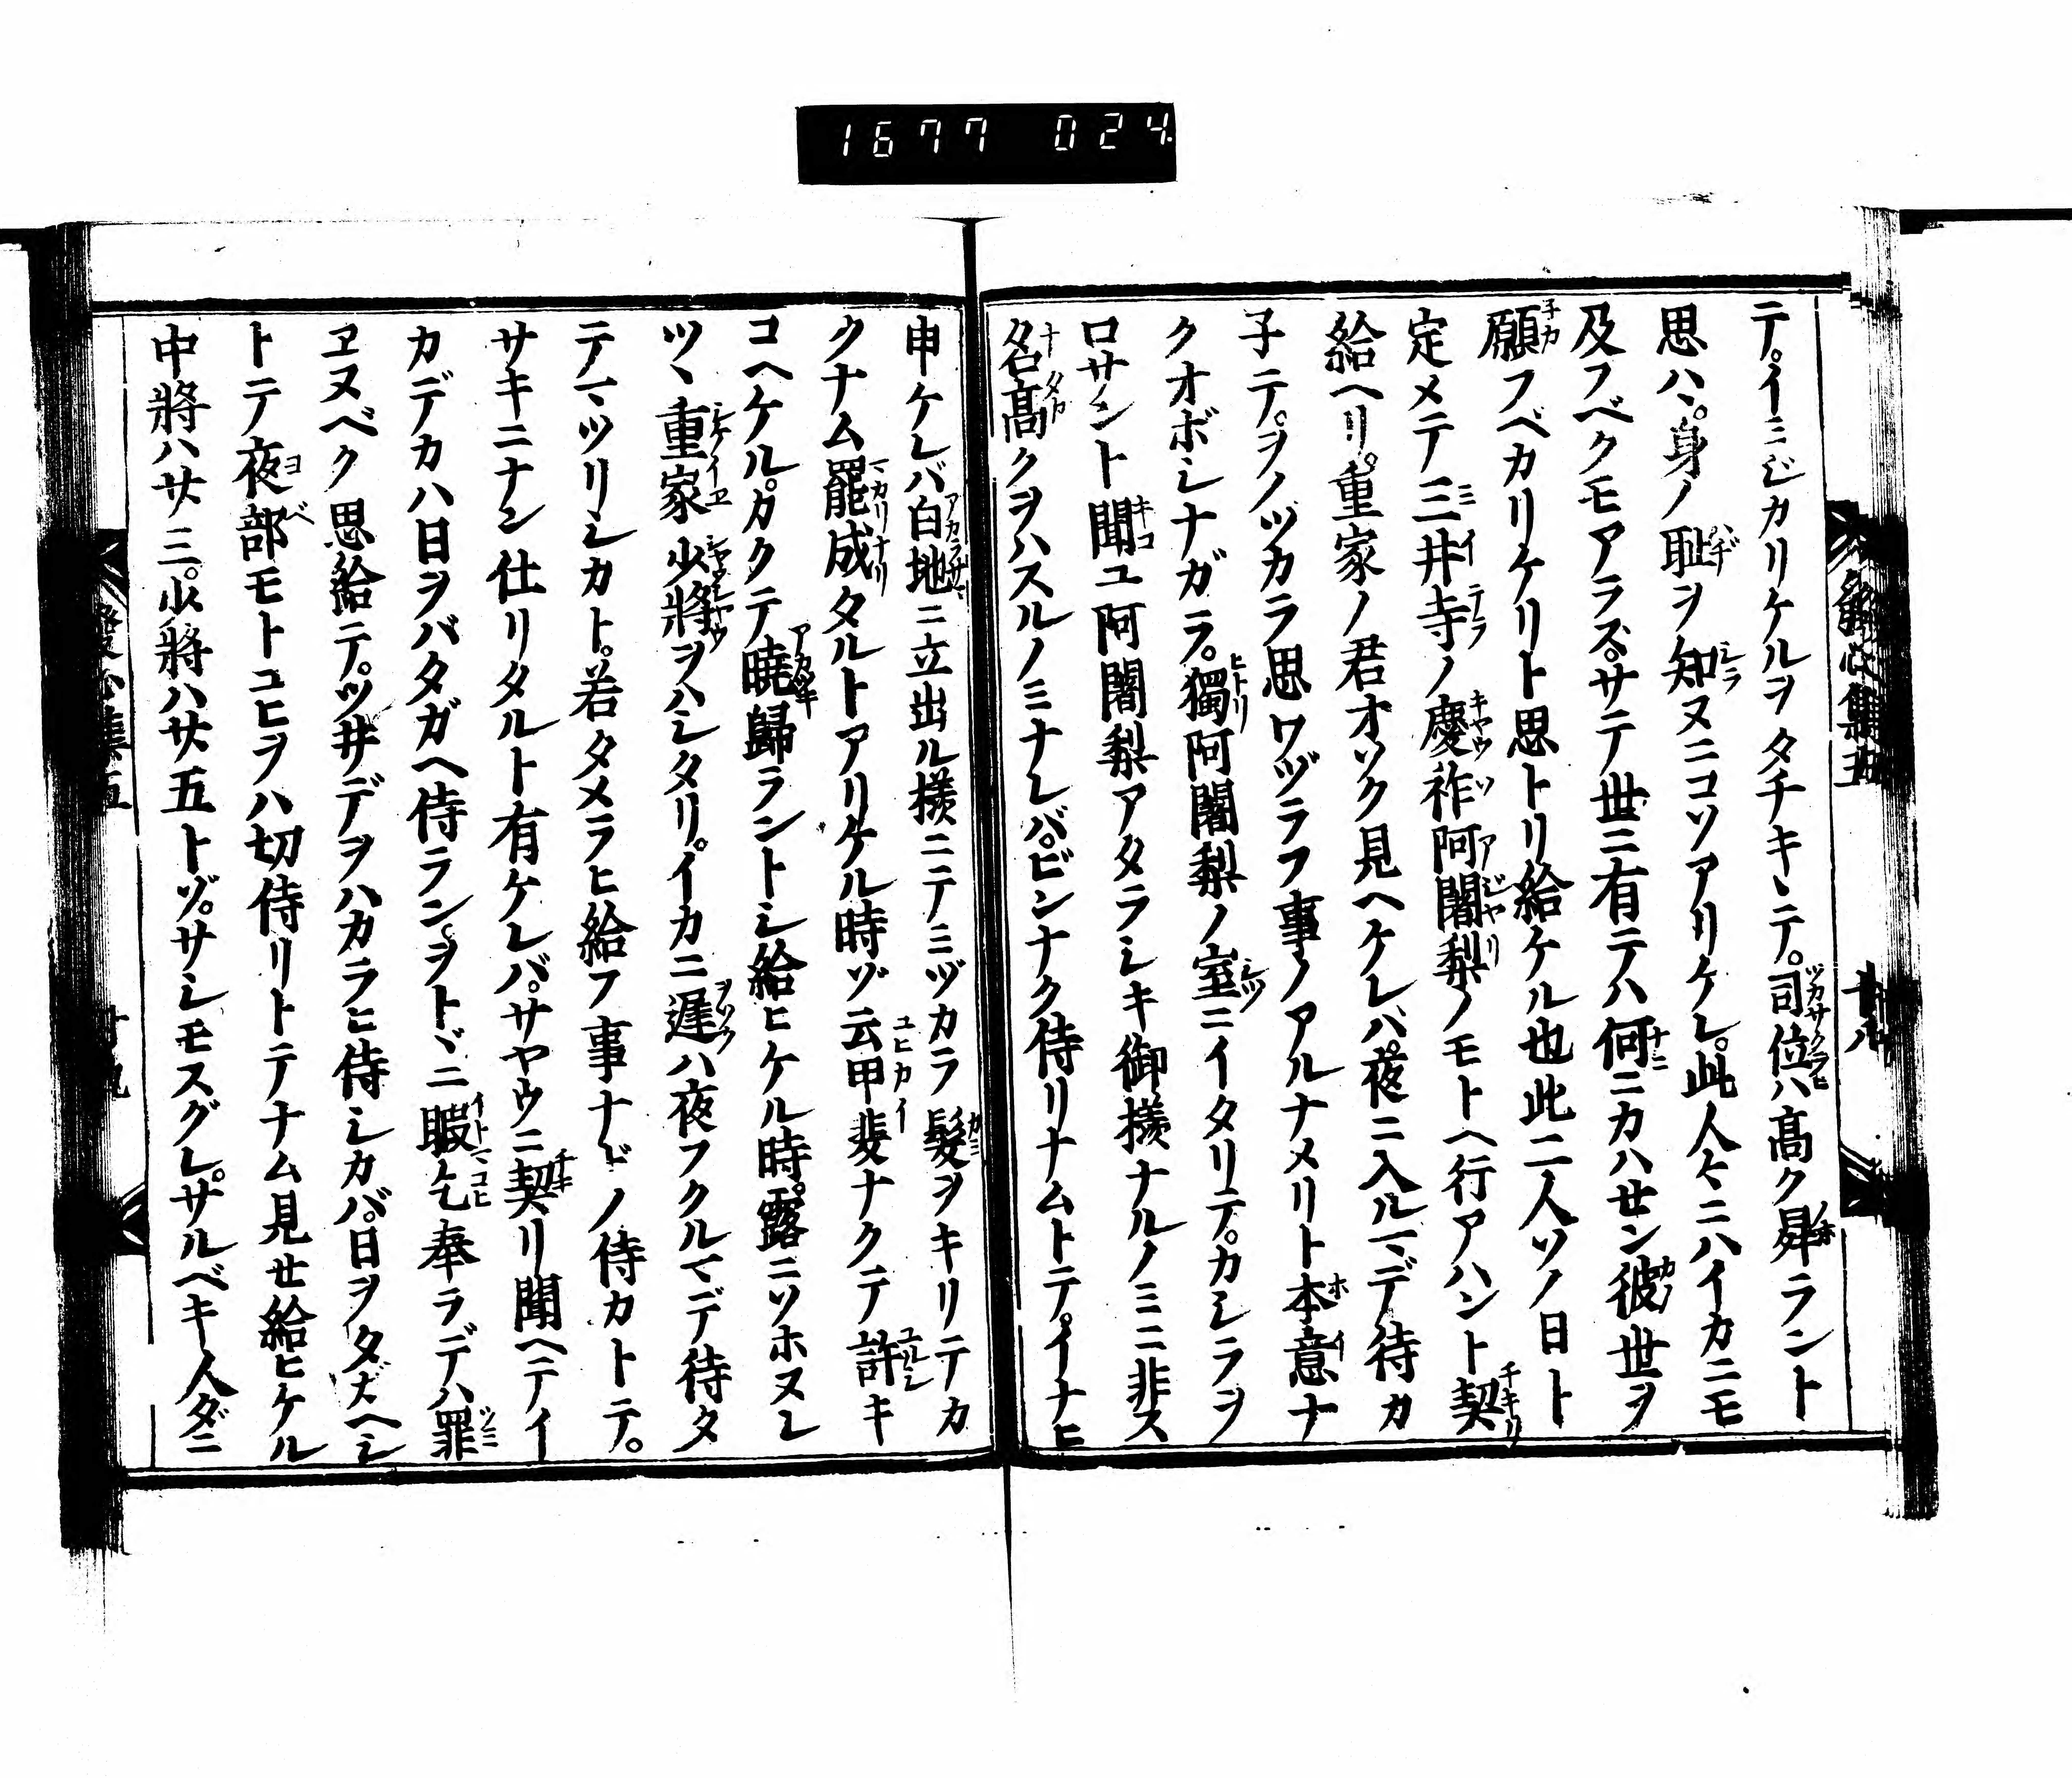 1677 024
テ。イミジカリケルヲタチキヽテ。司位ハ高ク昇ラント
思ハヾ。身ノ恥ヲ知ヌニコソアリケレ。此人々ニハイカニモ
及フベクモアラズ。サテ世ニ有テハ何ニカハせン彼世ヲ
願フベカリケリト思トリ給ケル也此二人ソノ日ト
定メテ三井寺ノ慶祚阿闍梨ノモトヘ行アハント契
給ヘリ。重家ノ君オソク見ヘケレバ。夜ニ入ルマデ待カ
子テ。ヲノヅカラ思ワヅラフ事ノアルナメリト本意ナ
クオボシナガラ。獨阿闍梨ノ室ニイタリテ。カシラヲ
ロサント聞ユ阿闍梨アタラシキ御樣ナルノミニ非ス
名高クヲハスルノミナレバ。ビンナク侍リナムトテ。イナヒ
申ケレバ白地ニ立出ル樣ニテミヅカラ髮ヲキリテカ
クナム罷成タルトアリケル時ゾ云甲斐ナクテ許キ
コヘケル。カクテ曉歸ラントシ給ヒケル時。露ニソホヌレ
ツヽ重家少將ヲハシタリ。イカニ遲ハ夜フクルマデ待タ
テマツリシカト。若タメラヒ給フ事ナドノ侍カトテ。
サキニナン仕リタルト有ケレバ。サヤウニ契リ聞ヘテイ
カデカハ日ヲバタガヘ侍ランヲトヾニ暇乞奉ラデハ罪
ヱヌベク思給テ。ツ井デヲハカラヒ侍シカバ。日ヲタガヘシ
トテ夜部モトユヒヲハ切侍リトテナム見せ給ヒケル
中將ハサ三。少將ハサ五トゾ。サシモスグレ。サルベキ人ダニ
發心集五